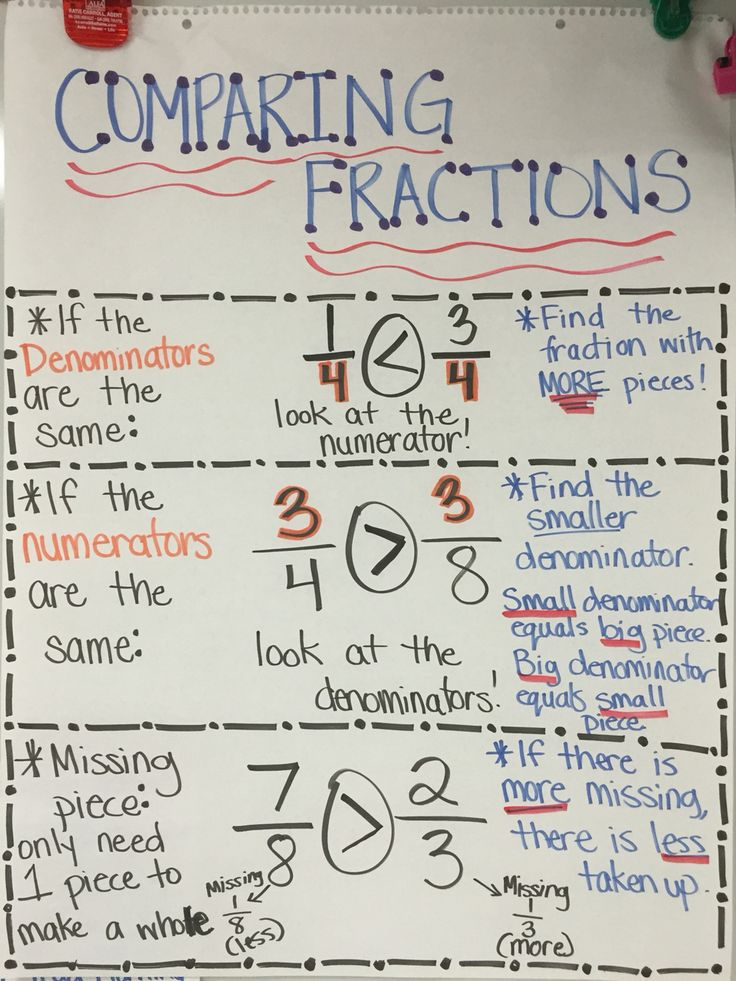 KATIE CARROLL, AGENT
COMPARING
FRACTIONS
*If the
Denominators
are the
same:
1/4 < 3/4
look at the
numerator!
*Find the
fraction with
MORE pieces!
*If the
numerators
are the
same:
3/4 > 3/8
look at the
denominators!
*Find the
smaller
denominator.
Small denominator
equals big piece.
Big denominator
equals small
piece.
*Missing
piece:
only need
1 piece to
make a whole
7/8 > 2/3
Missing
1/8
(less)
Missing
1/3
(more)
*If there is
more missing,
there is less
taken up.